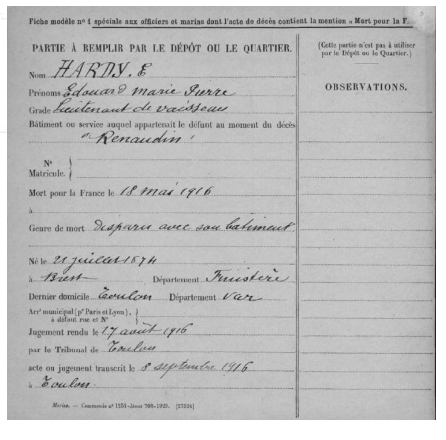 Fiche modèle nº 1 spéciale aux officiers et marins dont l'acte de décès contient la mention « Mort pour la F.
PARTIE À REMPLIR PAR LE DÉPÔT OU LE QUARTIER.
Nom HARDY. E
Prénoms Edouard Marie Pierre
Grade Lieutenant de vaisseau
Bâtiment ou service auquel appartenait le défunt au moment du décès
"Renaudin"
Nº
Matricule.
Mort pour la France le 18 Mai 1916
à
Genre de mort disparu avec son bâtiment
Né le 21 juillet 1874
à Brest Département Finistère
Dernier domicile Toulon Département Var
Arrᵗ municipal (pʳ Paris et Lyon),
à défaut rue et Nº
Jugement rendu le 17 août 1916
par le Tribunal de Toulon
acte ou jugement transcrit le 8 septembre 1916
à Toulon
Marine. — Commande nº 1251
(Cette partie n'est pas à utiliser
par le Dépôt ou le Quartier.)
OBSERVATIONS.